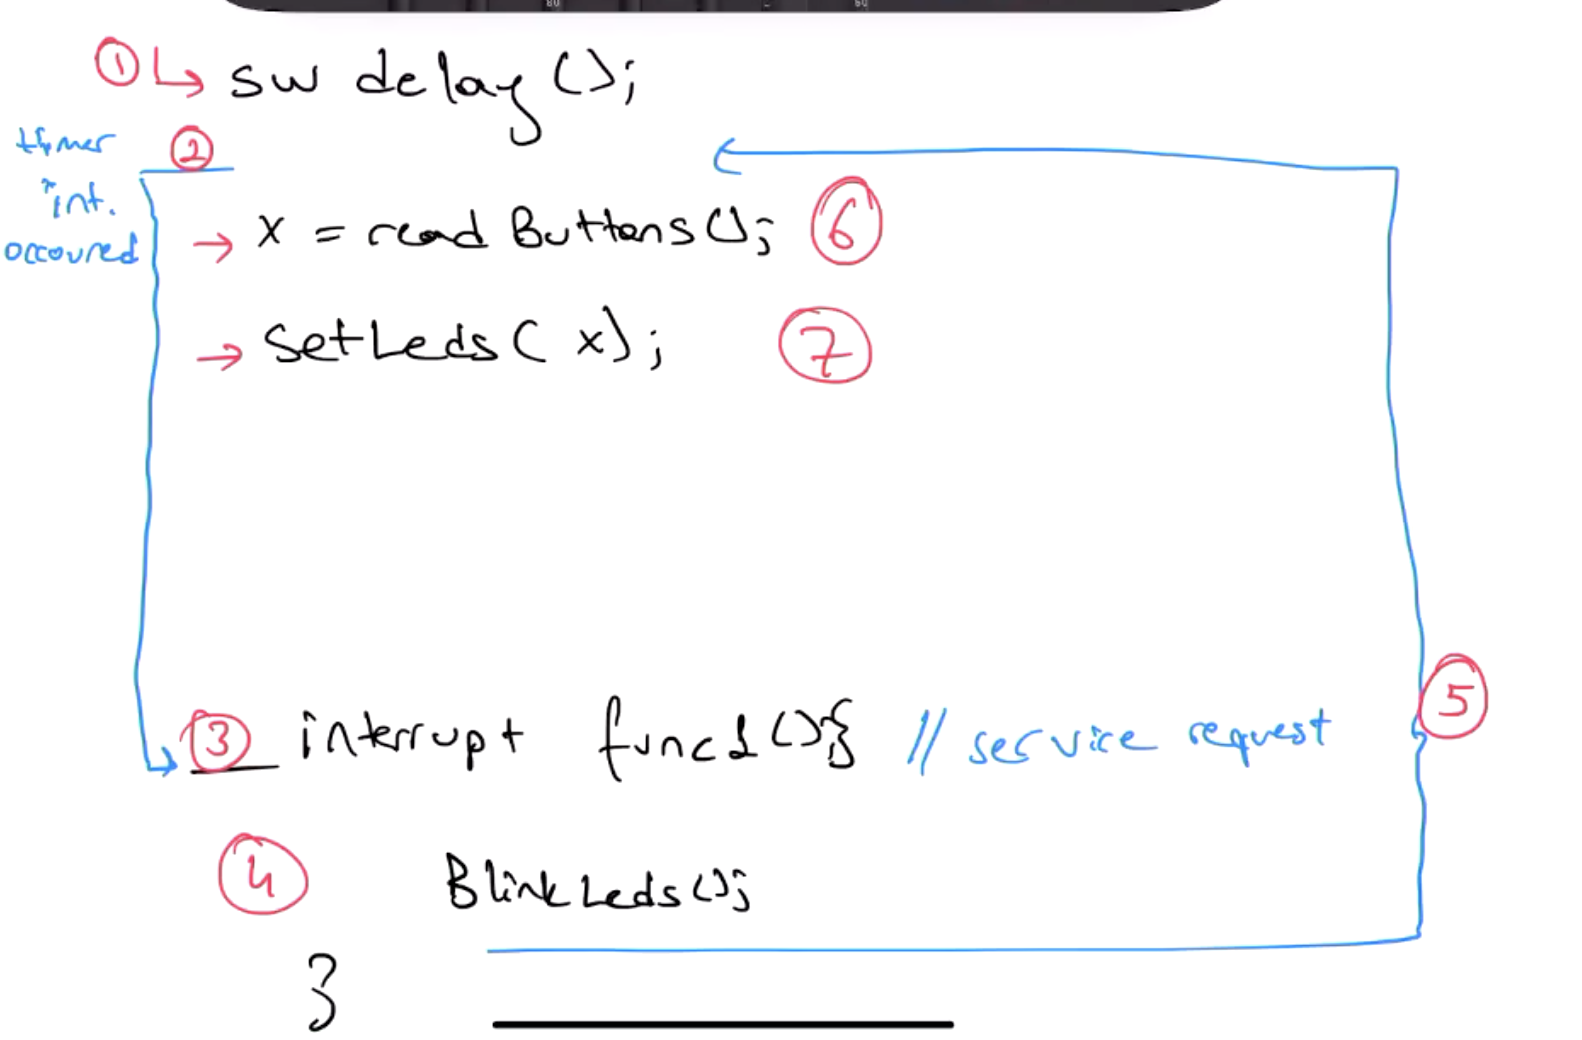 ① sw delay();
timer ②
int.
occoured
x = read Buttons(); ⑥
setLeds( x); ⑦
③ interrupt func1(){ // service request ⑤
④ BlinkLeds();
}